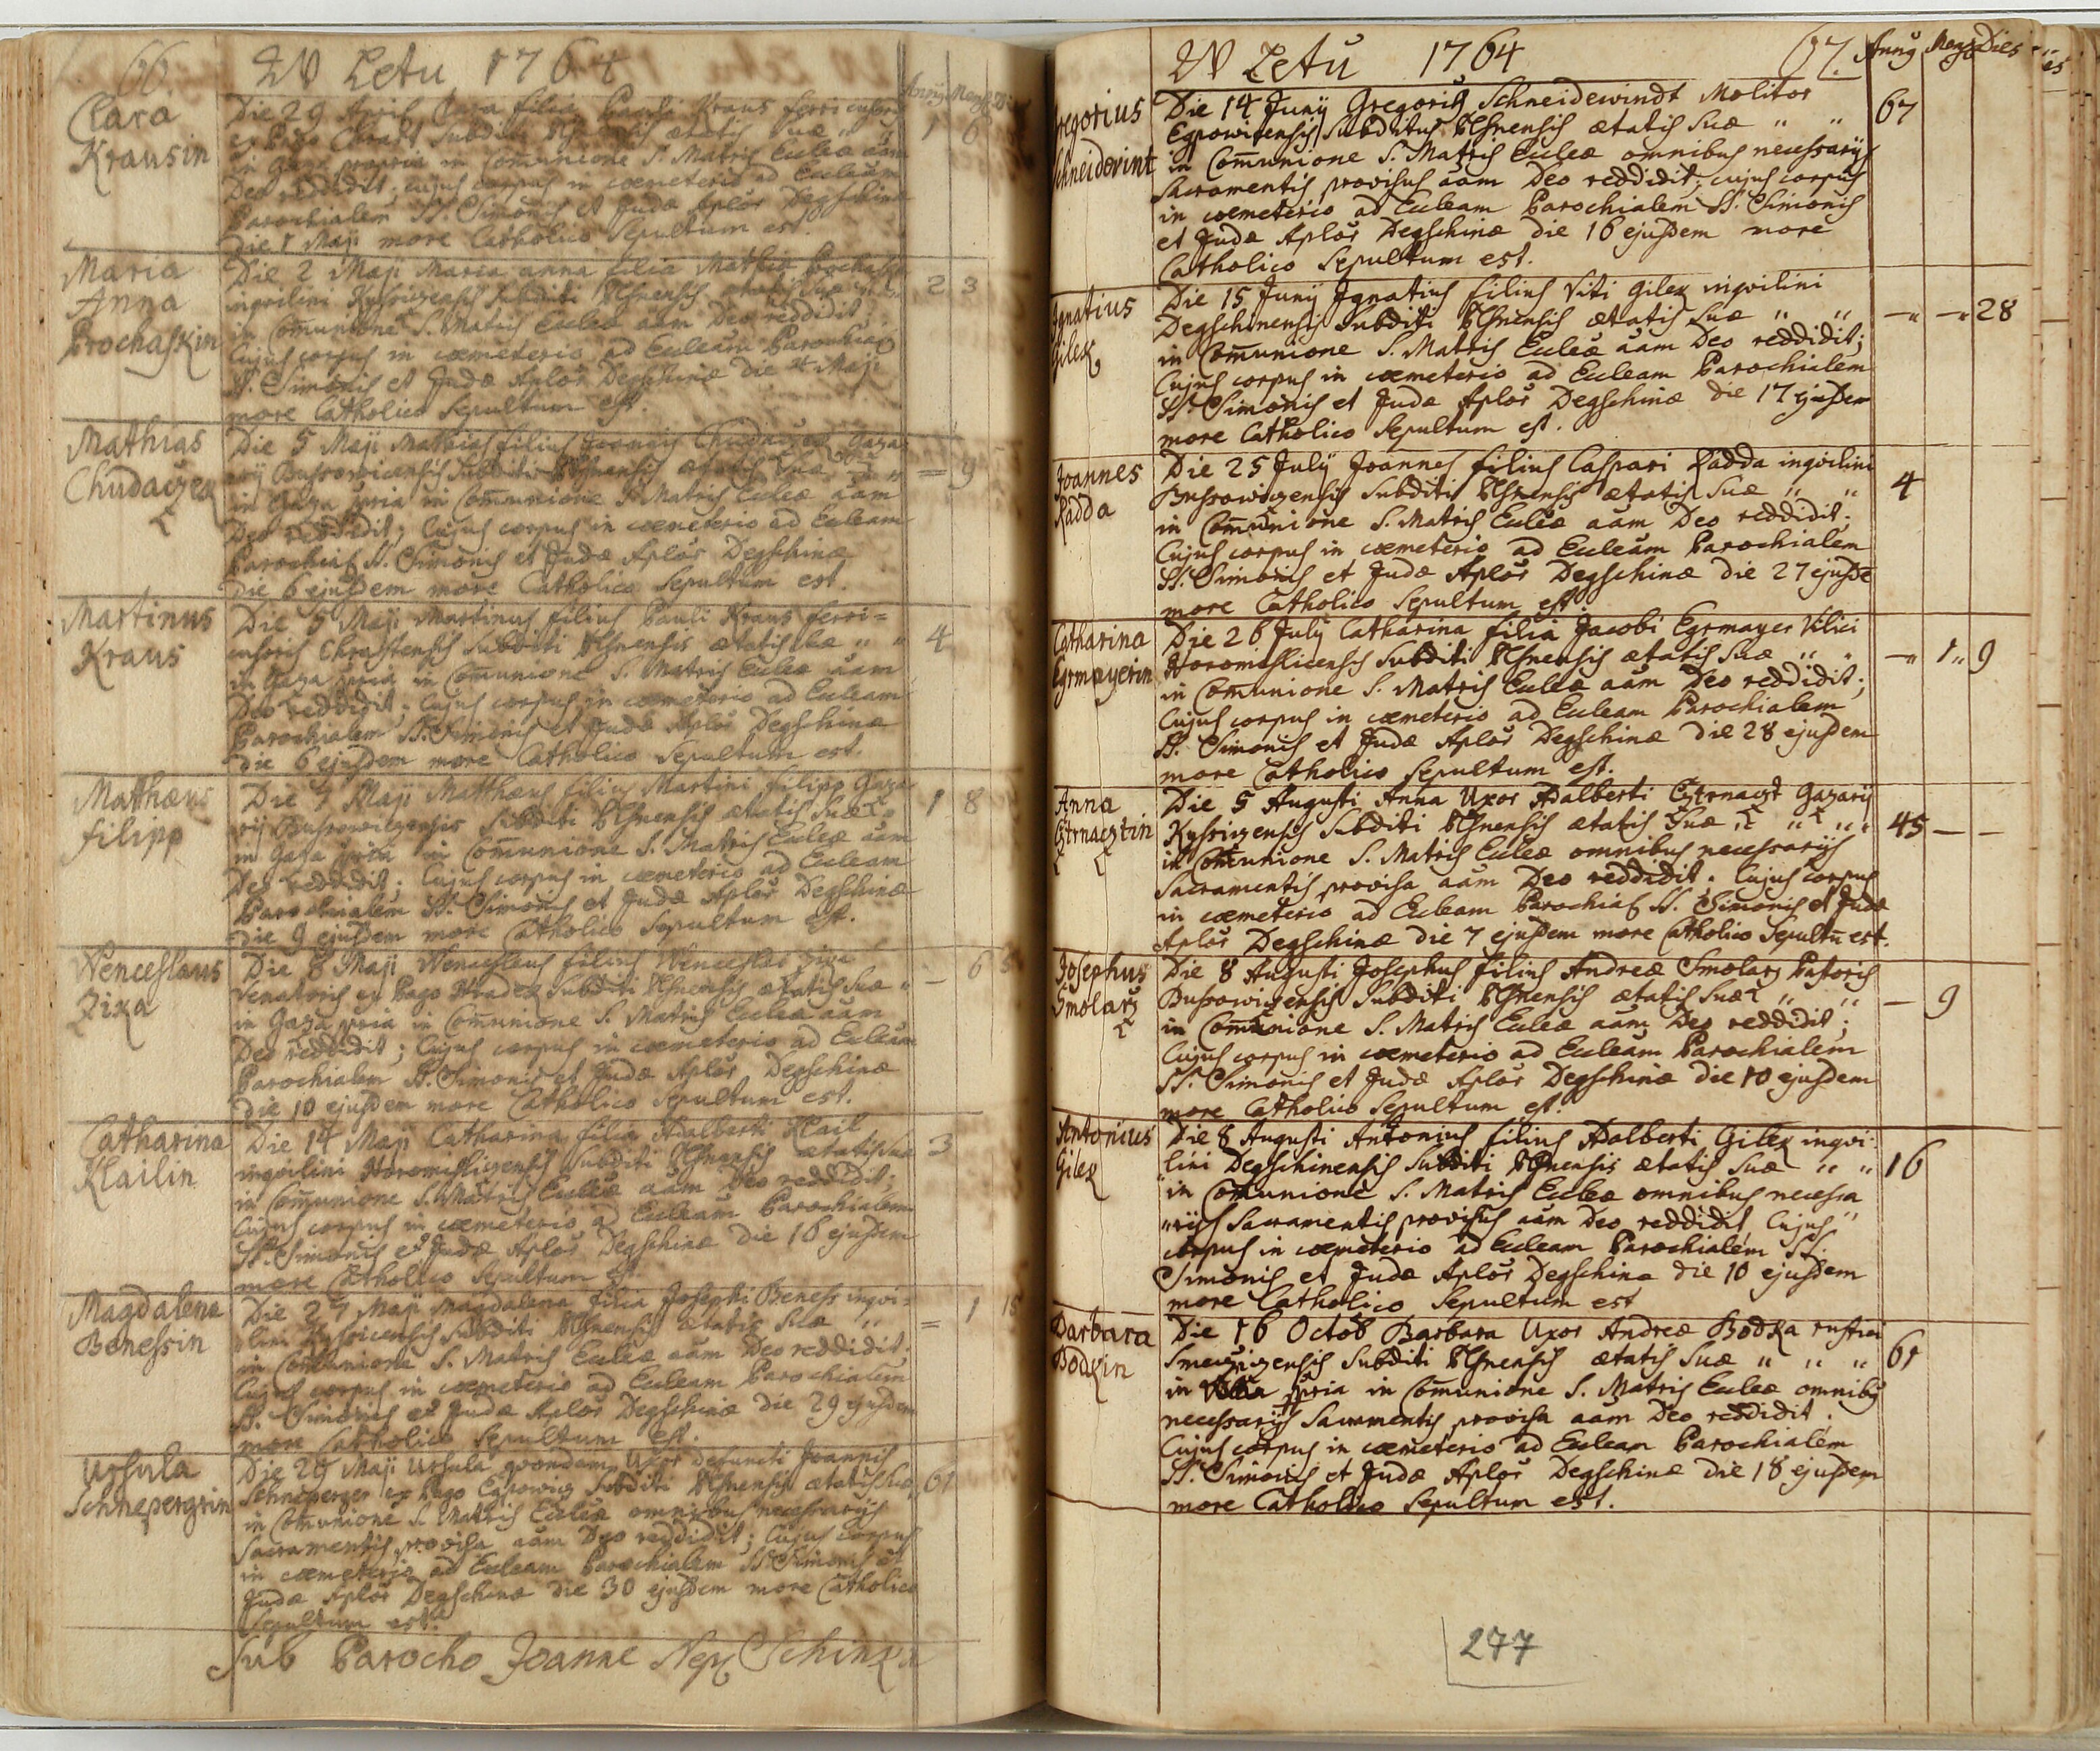 66. W Letu 1764
Annus Mens Di
Clara
Krausin
Die 29 April Clara filia Pauli Kraus ferri cusoris
ex Pago Chrast Subditi Plsnensis ætatis suæ " " 1 6
in Gaza propria in Comunione S. Matris Eccleæ aam
Deo reddidit; cujus corpus in cœmeterio ad Eccleam
Parochialem SS. Simonis et Judæ Aplor Degschinæ
Die 1 Maji more Catholico Sepultum est.
Maria
Anna
Prochaskin
Die 2 Maji Maria anna filia Mathiæ Prochaska
inqvilini Kyssicensis Subditi Plsnensis ætatis suæ 2 3
in Comunione S. Matris Eccleæ aam Deo reddidit;
Cujus corpus in cœmeterio ad Eccleam Parochia
SS. Simonis et Judæ Aplor Degschinæ die 4 Maji
more Catholico Sepultum est.
Mathias
Chudaczek
Die 5 Maji Mathias filius Joannis Chudaczek Gaza
rij Bussowicensis Subditi Plsnensis ætatis suæ = 9
in Gaza pria in Comunione S. Matris Eccleæ aam
Deo reddidit; Cujus corpus in cœmeterio ad Eccleam
Parochial SS. Simonis et Judæ Aplor Degschinæ
die 6 ejusdem more Catholico Sepultum est.
Martinus
Kraus
Die 5 Maji Martinus filius Pauli Kraus ferri=
cusoris Chrastensis Subditi Plsnensis ætatis suæ " " 4
in Gaza pria in Comunione S. Matris Eccleæ aam
Deo reddidit; Cujus corpus in cœmeterio ad Eccleam
Parochialem SS. Simonis et Judæ Aplor Degschinæ
die 6 ejusdem more Catholico Sepultum est.
Mathæus
filipp
Die 7 Maji Matthæus filius Martini filipp Gaza
rij Bussowicensis Subditi Plsnensis ætatis suæ 1 8
in Gaza pria in Comunione S. Matris Eccleæ aam
Deo reddidit; Cujus corpus in cœmeterio ad Eccleam
Parochialem SS. Simonis et Judæ Aplor Degschinæ
die 9 ejusdem more Catholico Sepultum est.
Wenceslaus
Zixa
Die 8 Maji Wenceslaus filius Wenceslai Zixa
Venatoris ex Pago Hradek Subditi Plsnensis ætatis suæ " — 6 5
in Gaza pria in Comunione S. Matris Eccleæ aam
Deo reddidit; Cujus corpus in cœmeterio ad Eccleam
Parochialem SS. Simonis et Judæ Aplor Degschinæ
die 10 ejusdem more Catholico Sepultum est.
Catharina
Klailin
Die 14 Maji Catharina filia Adalberti Klail
inqvilini Horomislizensis Subditi Plsnensis ætatis suæ 3
in Comunione S. Matris Eccleæ aam Deo reddidit;
Cujus corpus in cœmeterio ad Eccleam Parochialem
SS. Simonis et Judæ Aplor Degschinæ die 16 ejusdem
more Catholico Sepultum est.
Magdalena
Benessin
Die 27 Maji Magdalena filia Josephi Beness inqvi=
lini Kyssicensis Subditi Plsnensis ætatis suæ " = 1 15
in Comunione S. Matris Eccleæ aam Deo reddidit.
Cujus corpus in cœmeterio ad Eccleam Parochialem
SS. Simonis et Judæ Aplor Degschinæ die 29 ejusdem
more Catholico Sepultum est.
Ursula
Schnepergrin
Die 29 Maji Ursula qvondam Uxor defuncti Joannis
Schneperger ex Pago Egpowicz Subditi Plsnensis ætatis suæ 61
in Comunione S. Matris Eccleæ omnibus necessarijs
Sacramentis provisa aam Deo reddidit; Cujus corpus
in cœmeterio ad Eccleam Parochialem SS. Simonis et
Judæ Aplor Degschinæ die 30 ejusdem more Catholico
Sepultum est.
Sub Parocho Joanne Nep. Schinka
W Letu 1764 67. Annus Mens Dies
Gregorius
Schneidevint
Die 14 Junÿ Gregorius Schneidewindt Molitor
Egpowicensis Subditus Plsnensis ætatis suæ " " 67
in Comunione S. Matris Eccleæ omnibus necessarijs
Sacramentis provisus aam Deo reddidit; cujus corpus
in cœmeterio ad Eccleam Parochialem SS. Simonis
et Judæ Aplor Degschinæ die 16 ejusdem more
Catholico Sepultum est.
Ignatius
Gilek
Die 15 Junÿ Ignatius filius Viti Gilek inqvilini
Degschinensis Subditi Plsnensis ætatis suæ " " —" —" 28
in Comunione S. Matris Eccleæ aam Deo reddidit;
Cujus corpus in cœmeterio ad Eccleam Parochialem
SS. Simonis et Judæ Aplor Degschinæ die 17 ejusdem
more Catholico Sepultum est.
Joannes
Radda
Die 25 Julÿ Joannes filius Caspari Radda inqvilini
Bussowizensis Subditi Plsnensis ætatis suæ " " 4
in Comunione S. Matris Eccleæ aam Deo reddidit;
Cujus corpus in cœmeterio ad Eccleam Parochialem
SS. Simonis et Judæ Aplor Degschinæ die 27 ejusde
more Catholico Sepultum est
Catharina
Egrmayerin
Die 26 July Catharina filia Jacobi Egrmayer Vilici
Horomislicensis Subditi Plsnensis ætatis suæ " " —" 1" 9
in Comunione S. Matris Eccleæ aam Deo reddidit;
Cujus corpus in cœmeterio ad Eccleam Parochialem
SS. Simonis et Judæ Aplor Degschinæ die 28 ejusdem
more Catholico Sepultum est.
Anna
Cztrnacztin
Die 5 Augusti Anna Uxor Adalberti Cztrnaczt Gazarij
Kyssizensis Subditi Plsnensis ætatis suæ " " " 45 — —
in Comunione S. Matris Eccleæ omnibus necessarijs
Sacramentis provisa aam Deo reddidit. Cujus corpus
in cœmeterio ad Eccleam Parochial SS. Simonis et Judæ
Aplor Degschinæ die 7 ejusdem more Catholico Sepultu est.
Josephus
Smolarz
Die 8 Augusti Josephus filius Andreæ Smolarz Pastoris
Bussowizensis Subditi Plsnensis ætatis suæ " " — 9
in Comunione S. Matris Eccleæ aam Deo reddidit;
Cujus corpus in cœmeterio ad Eccleam Parochialem
SS. Simonis et Judæ Aplor Degschinæ die 10 ejusdem
more Catholico Sepultum est.
Antonius
Gilek
Die 8 Augusti Antonius filius Adalberti Gilek inqvi:
lini Degschinensis Subditi Plsnensis ætatis suæ " " 16
in Comunione S. Matris Eccleæ omnibus necessa
"rijs Sacramentis provisus aam Deo reddidit, Cujus"
corpus in cœmeterio ad Eccleam Parochialem SS.
Simonis et Judæ Aplor Degschina die 10 ejusdem
more Catholico Sepultum est
Barbara
Bodkin
Die 16 Octob Barbara Uxor Andreæ Bodka rustici
Smeczizensis Subditi Plsnensis ætatis suæ " " " 61
in pria in Comunione S. Matris Eccleæ omnibus
necessarijs Sacramentis provisa aam Deo reddidit.
Cujus corpus in cœmeterio ad Eccleam Parochialem
SS. Simonis et Judæ Aplor Degschinæ die 18 ejusdem
more Catholico Sepultum est.
277